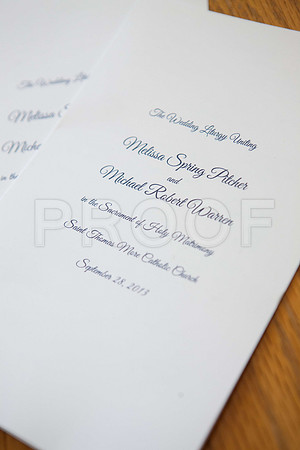 The Wedding Liturgy Uniting
Melissa Spring Pitcher
and
Michael Robert Warren
in the Sacrament of Holy Matrimony
Saint Thomas More Catholic Church
September 28, 2013
PROOF
The Wedding
Melissa
Michae
in the